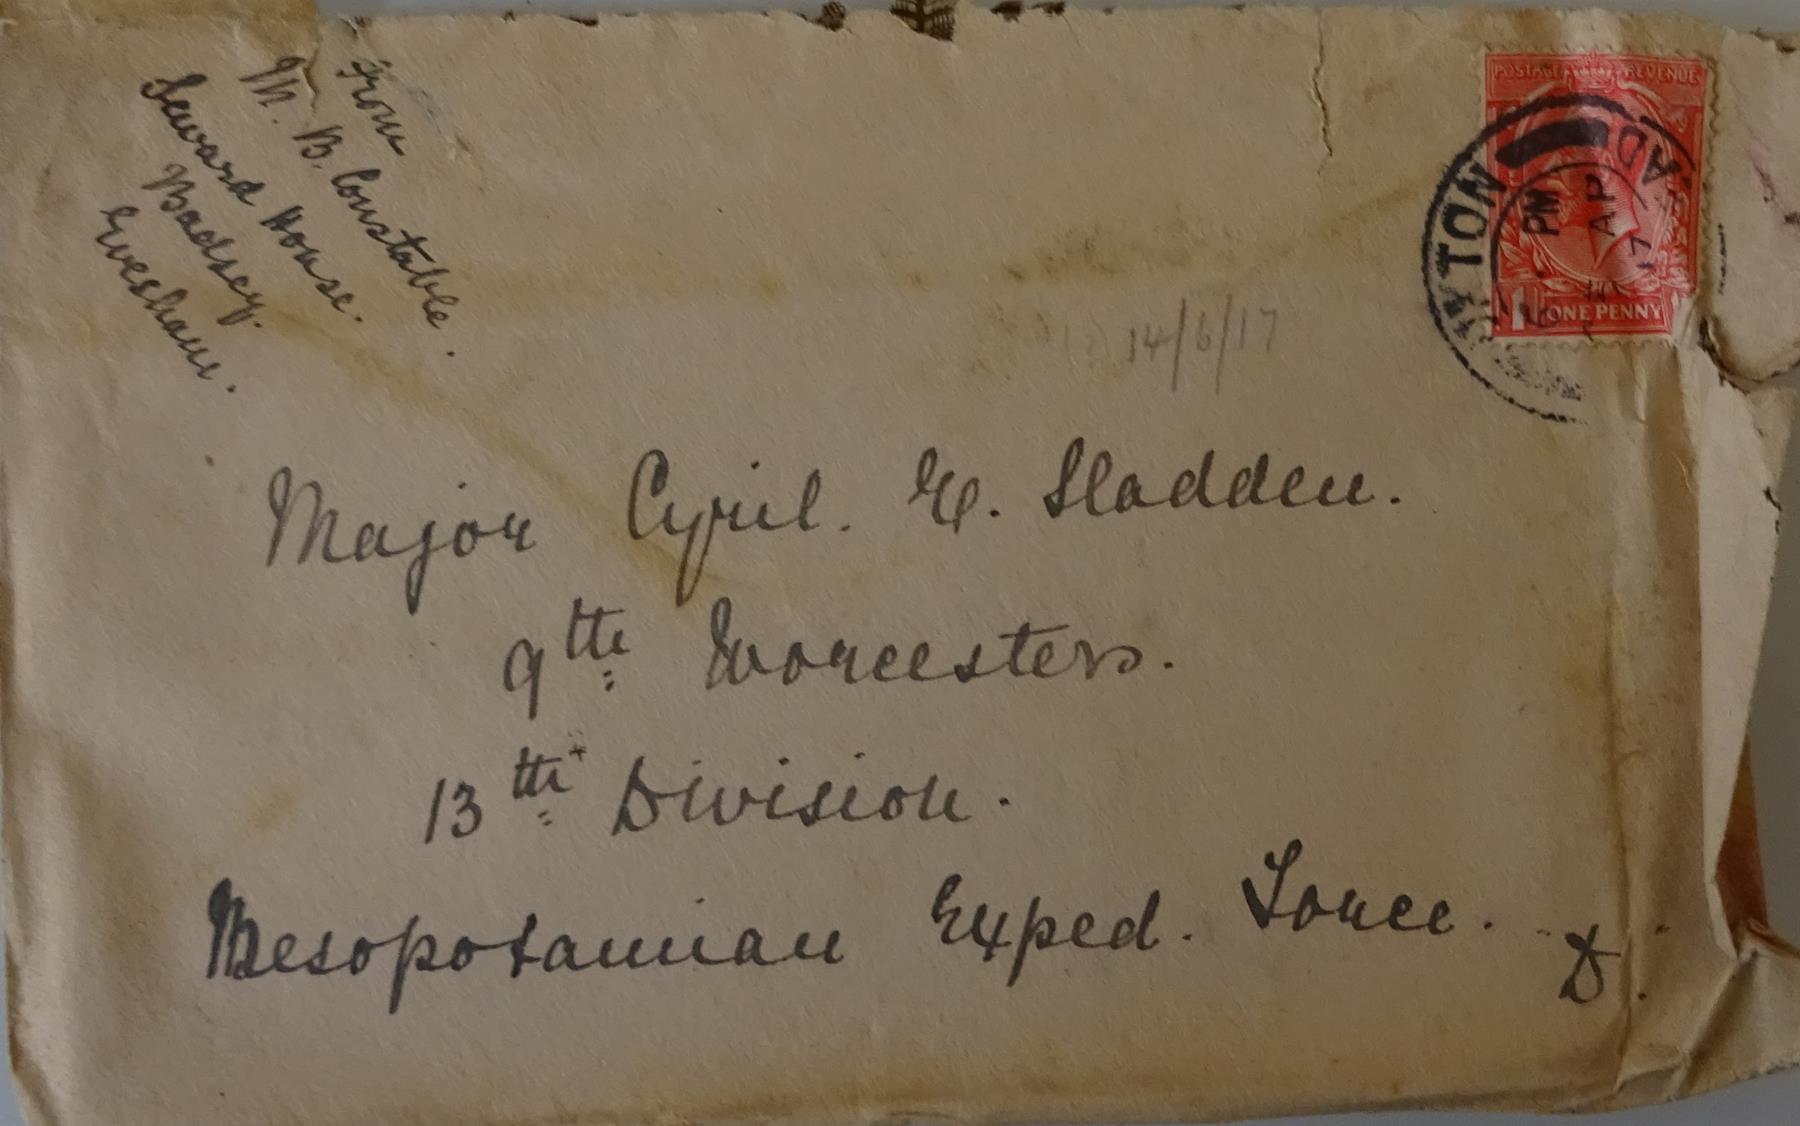 From
M. B. Constable.
Seward House.
Badsey.
Evesham.
POSTAGE REVENUE
TON
AD
PM
AP
17
1 ONE PENNY
14/6/17
Major Cyril. E. Sladden.
9th Worcesters.
13th Division.
Mesopotamian Exped. Force. D.